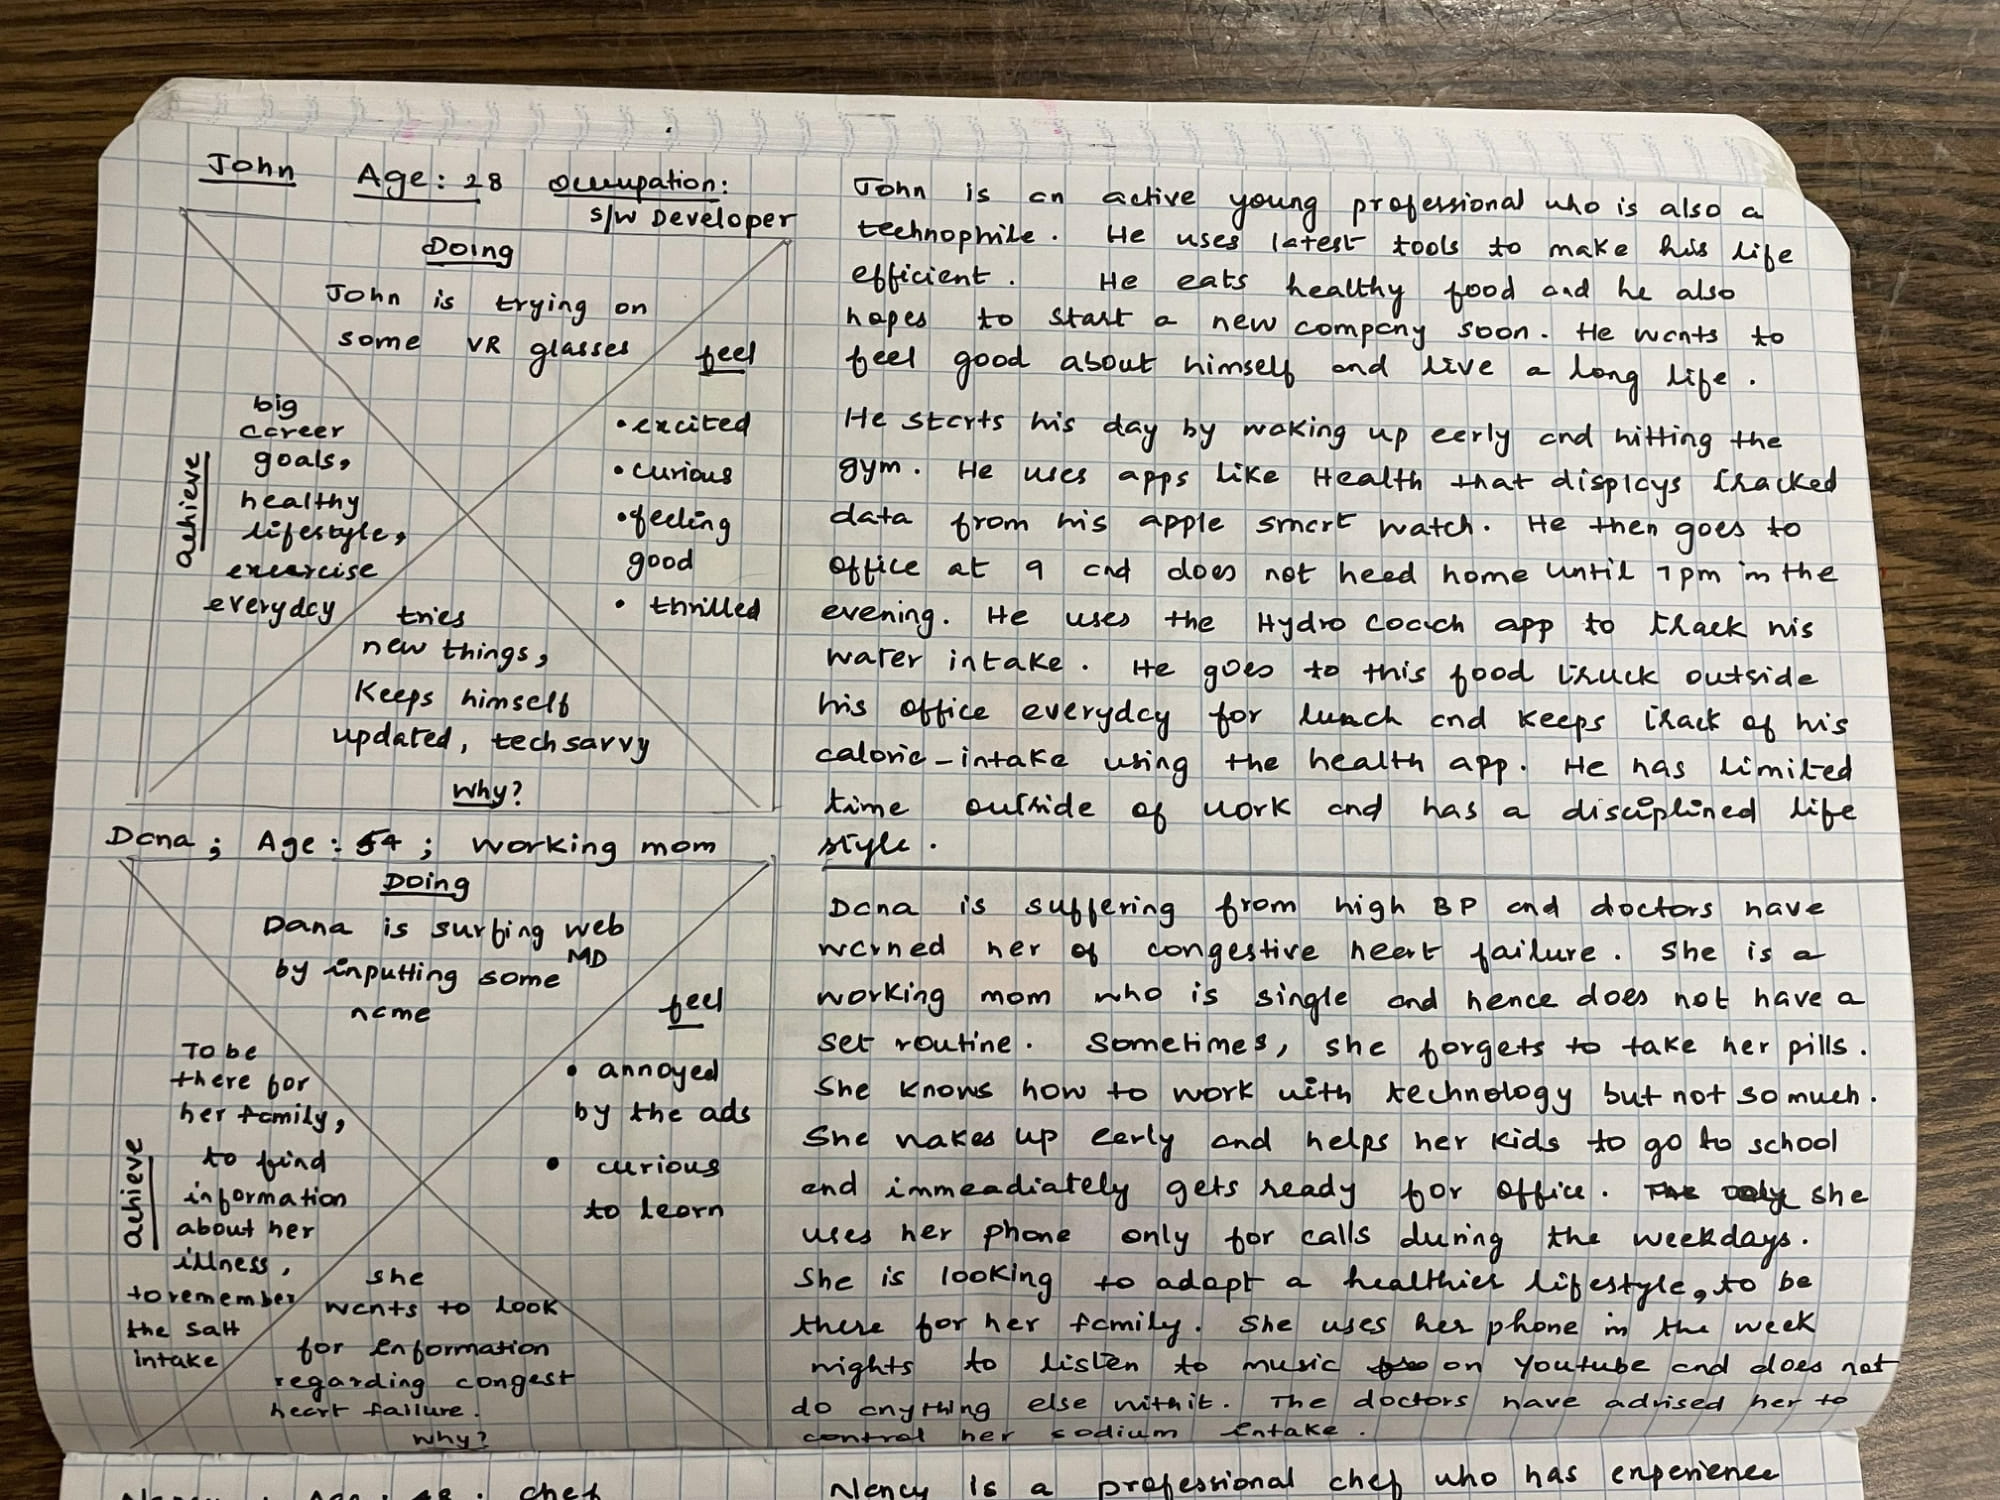 John Age: 28 Occupation:
S/W Developer
Doing
John is trying on
some VR glasses
feel
• excited
• curious
• feeling
good
• thrilled
achieve
big
career
goals,
healthy
lifestyle,
excercise
everyday
tries
new things,
Keeps himself
updated, tech savvy
Why?
John is an active young professional who is also a
technophile. He uses latest tools to make his life
efficient. He eats healthy food and he also
hopes to start a new company soon. He wants to
feel good about himself and live a long life.
He starts his day by waking up early and hitting the
gym. He uses apps like Health that displays tracked
data from his apple smart watch. He then goes to
office at 9 and does not head home until 7pm in the
evening. He uses the Hydro Coach app to track his
water intake. He goes to this food truck outside
his office everyday for lunch and keeps track of his
calorie-intake using the health app. He has limited
time outside of work and has a disciplined life
style.
Dana; Age: 54; working mom
Doing
Dana is surfing web
MD
by inputting some
name
feel
• annoyed
by the ads
• curious
to learn
achieve
To be
there for
her family,
to find
information
about her
illness,
to remember
the salt
intake
she
wants to look
for information
regarding congest
heart failure.
Why?
Dana is suffering from high BP and doctors have
warned her of congestive heart failure. She is a
working mom who is single and hence does not have a
set routine. Sometimes, she forgets to take her pills.
She knows how to work with technology but not so much.
She wakes up early and helps her kids to go to school
and immeadiately gets ready for office. The only she
uses her phone only for calls during the weekdays.
She is looking to adapt a healthier lifestyle, to be
there for her family. She uses her phone in the week
nights to listen to music on Youtube and does not
do anything else with it. The doctors have advised her to
control her sodium intake.
Nancy; Age: 48; chef
Nancy is a professional chef who has experience